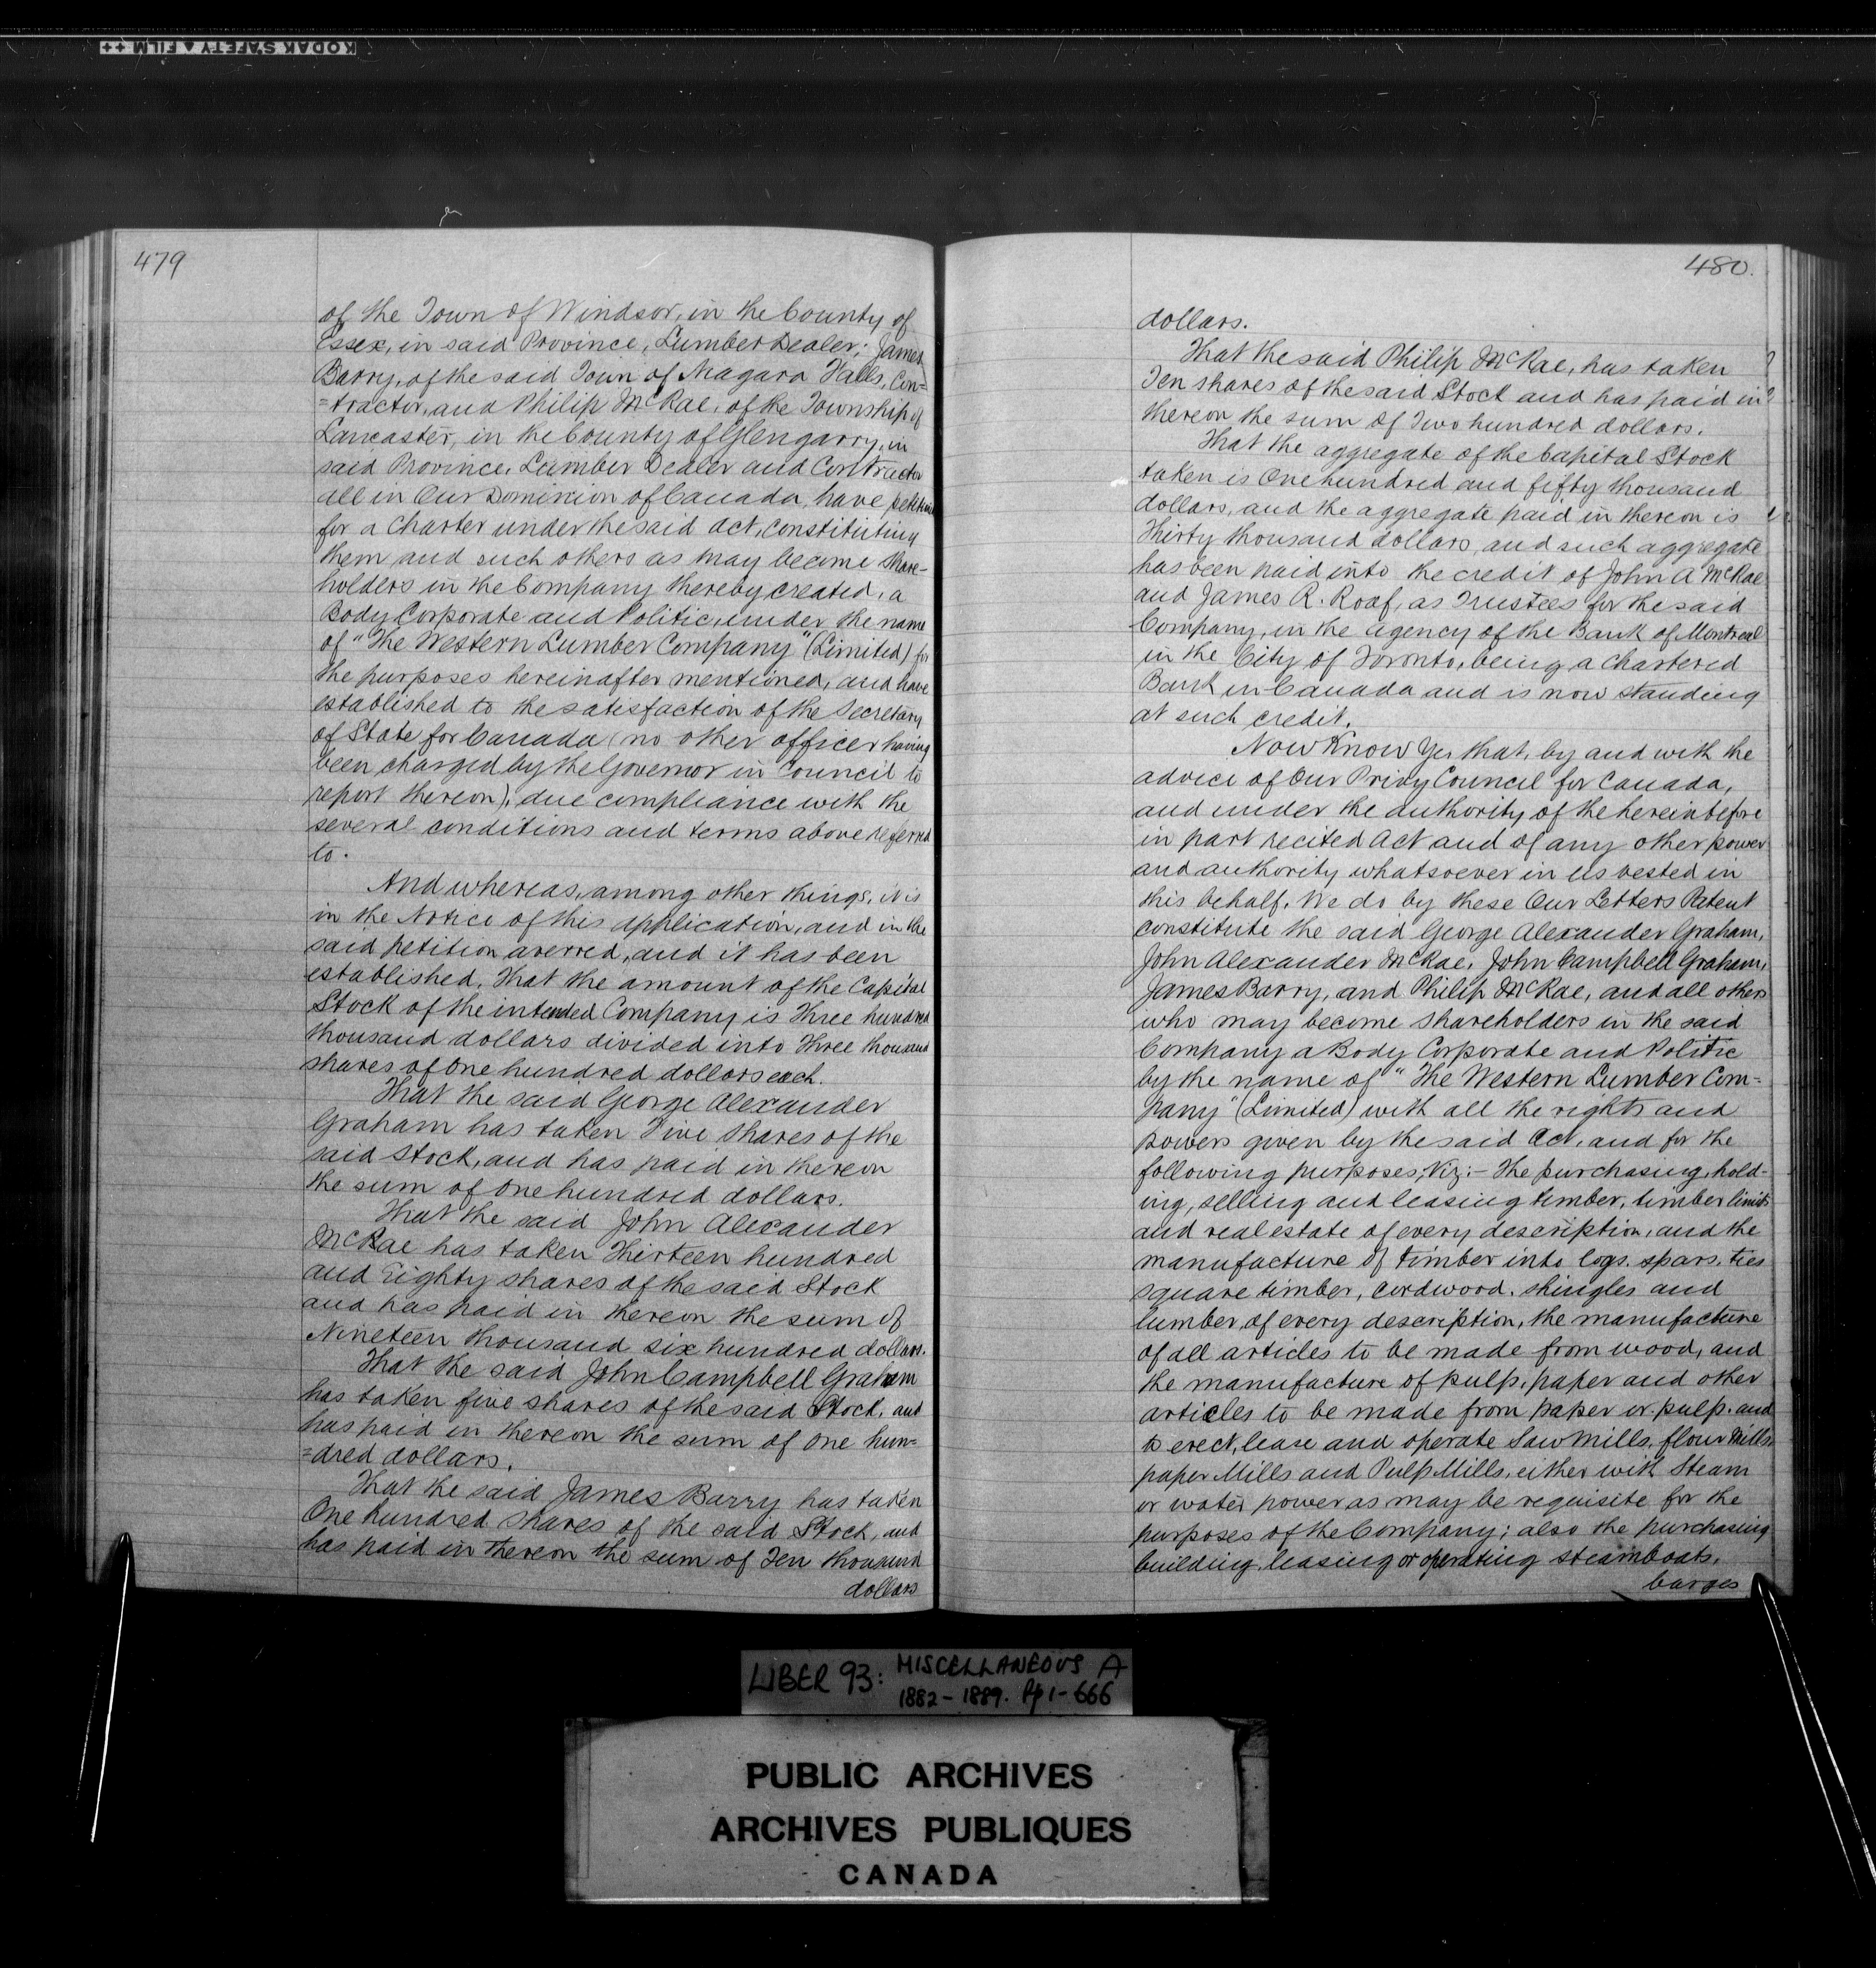 KODAK SAFETY ▲ FILM ++
479
of the Town of Windsor, in the County of
Essex, in said Province, Lumber Dealer; James
Barry, of the said Town of Niagara Falls, Con=
=tractor, and Philip McRae, of the Township of
Lancaster, in the County of Glengarry, in
said Province, Lumber Dealer and Contractor
all in Our Dominion of Canada, have petitioned
for a Charter under the said Act, constituting
them and such others as may become Share-
holders in the Company thereby created, a
Body Corporate and Politic, under the name
of "The Western Lumber Company" (Limited) for
the purposes hereinafter mentioned, and have
established to the satisfaction of the Secretary
of State for Canada (no other officer having
been charged by the Governor in Council to
report thereon), due compliance with the
several conditions and terms above referred
to.
And whereas, among other things, it is
in the Notice of this application, and in the
said petition averred, and it has been
established, That the amount of the Capital
Stock of the intended Company is Three hundred
thousand dollars divided into Three thousand
shares of One hundred dollars each.
That the said George Alexander
Graham has taken Five shares of the
said Stock, and has paid in thereon
the sum of One hundred dollars.
That the said John Alexander
McRae has taken Thirteen hundred
and Eighty shares of the said Stock
and has paid in thereon the sum of
Nineteen thousand six hundred dollars.
That the said John Campbell Graham
has taken five shares of the said Stock, and
has paid in thereon the sum of One hun=
=dred dollars.
That the said James Barry has taken
One hundred shares of the said Stock, and
has paid in thereon the sum of Ten thousand
dollars
480.
dollars.
That the said Philip McRae, has taken
Ten shares of the said Stock and has paid in
thereon the sum of Two hundred dollars.
That the aggregate of the Capital Stock
taken is One hundred and fifty thousand
dollars, and the aggregate paid in thereon is
Thirty thousand dollars, and such aggregate
has been paid into the credit of John A McRae
and James R. Roaf, as Trustees for the said
Company, in the Agency of the Bank of Montreal
in the City of Toronto, being a Chartered
Bank in Canada and is now standing
at such credit.
Now Know Ye, that, by and with the
advice of Our Privy Council for Canada,
and under the authority of the hereinbefore
in part recited Act and of any other power
and authority whatsoever in Us vested in
this behalf, We do by these Our Letters Patent
constitute the said George Alexander Graham,
John Alexander McRae, John Campbell Graham,
James Barry, and Philip McRae, and all others
who may become shareholders in the said
Company a Body Corporate and Politic
by the name of "The Western Lumber Com=
pany" (Limited) with all the rights and
powers given by the said Act, and for the
following purposes, Viz:- The purchasing, hold-
ing, selling and leasing timber, timber limits
and real estate of every description, and the
manufacture of timber into logs, spars, ties
square timber, cordwood, shingles and
lumber, of every description, the manufacture
of all articles to be made from wood, and
the manufacture of pulp, paper and other
articles to be made from paper or pulp, and
to erect, lease and operate Saw Mills, flour Mills,
paper Mills and Pulp Mills, either with Steam
or water power as may be requisite for the
purposes of the Company; also the purchasing
building, leasing or operating steamboats,
barges
LIBER 93: MISCELLANEOUS A
1882-1889. Pp 1-666
PUBLIC ARCHIVES
ARCHIVES PUBLIQUES
CANADA